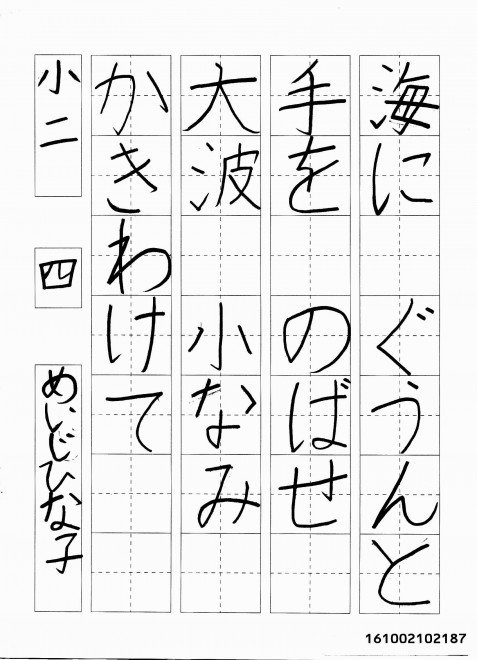 海に ぐうんと
手を のばせ
大波 小なみ
かきわけて
小二
四
めいじひな子
161002102187